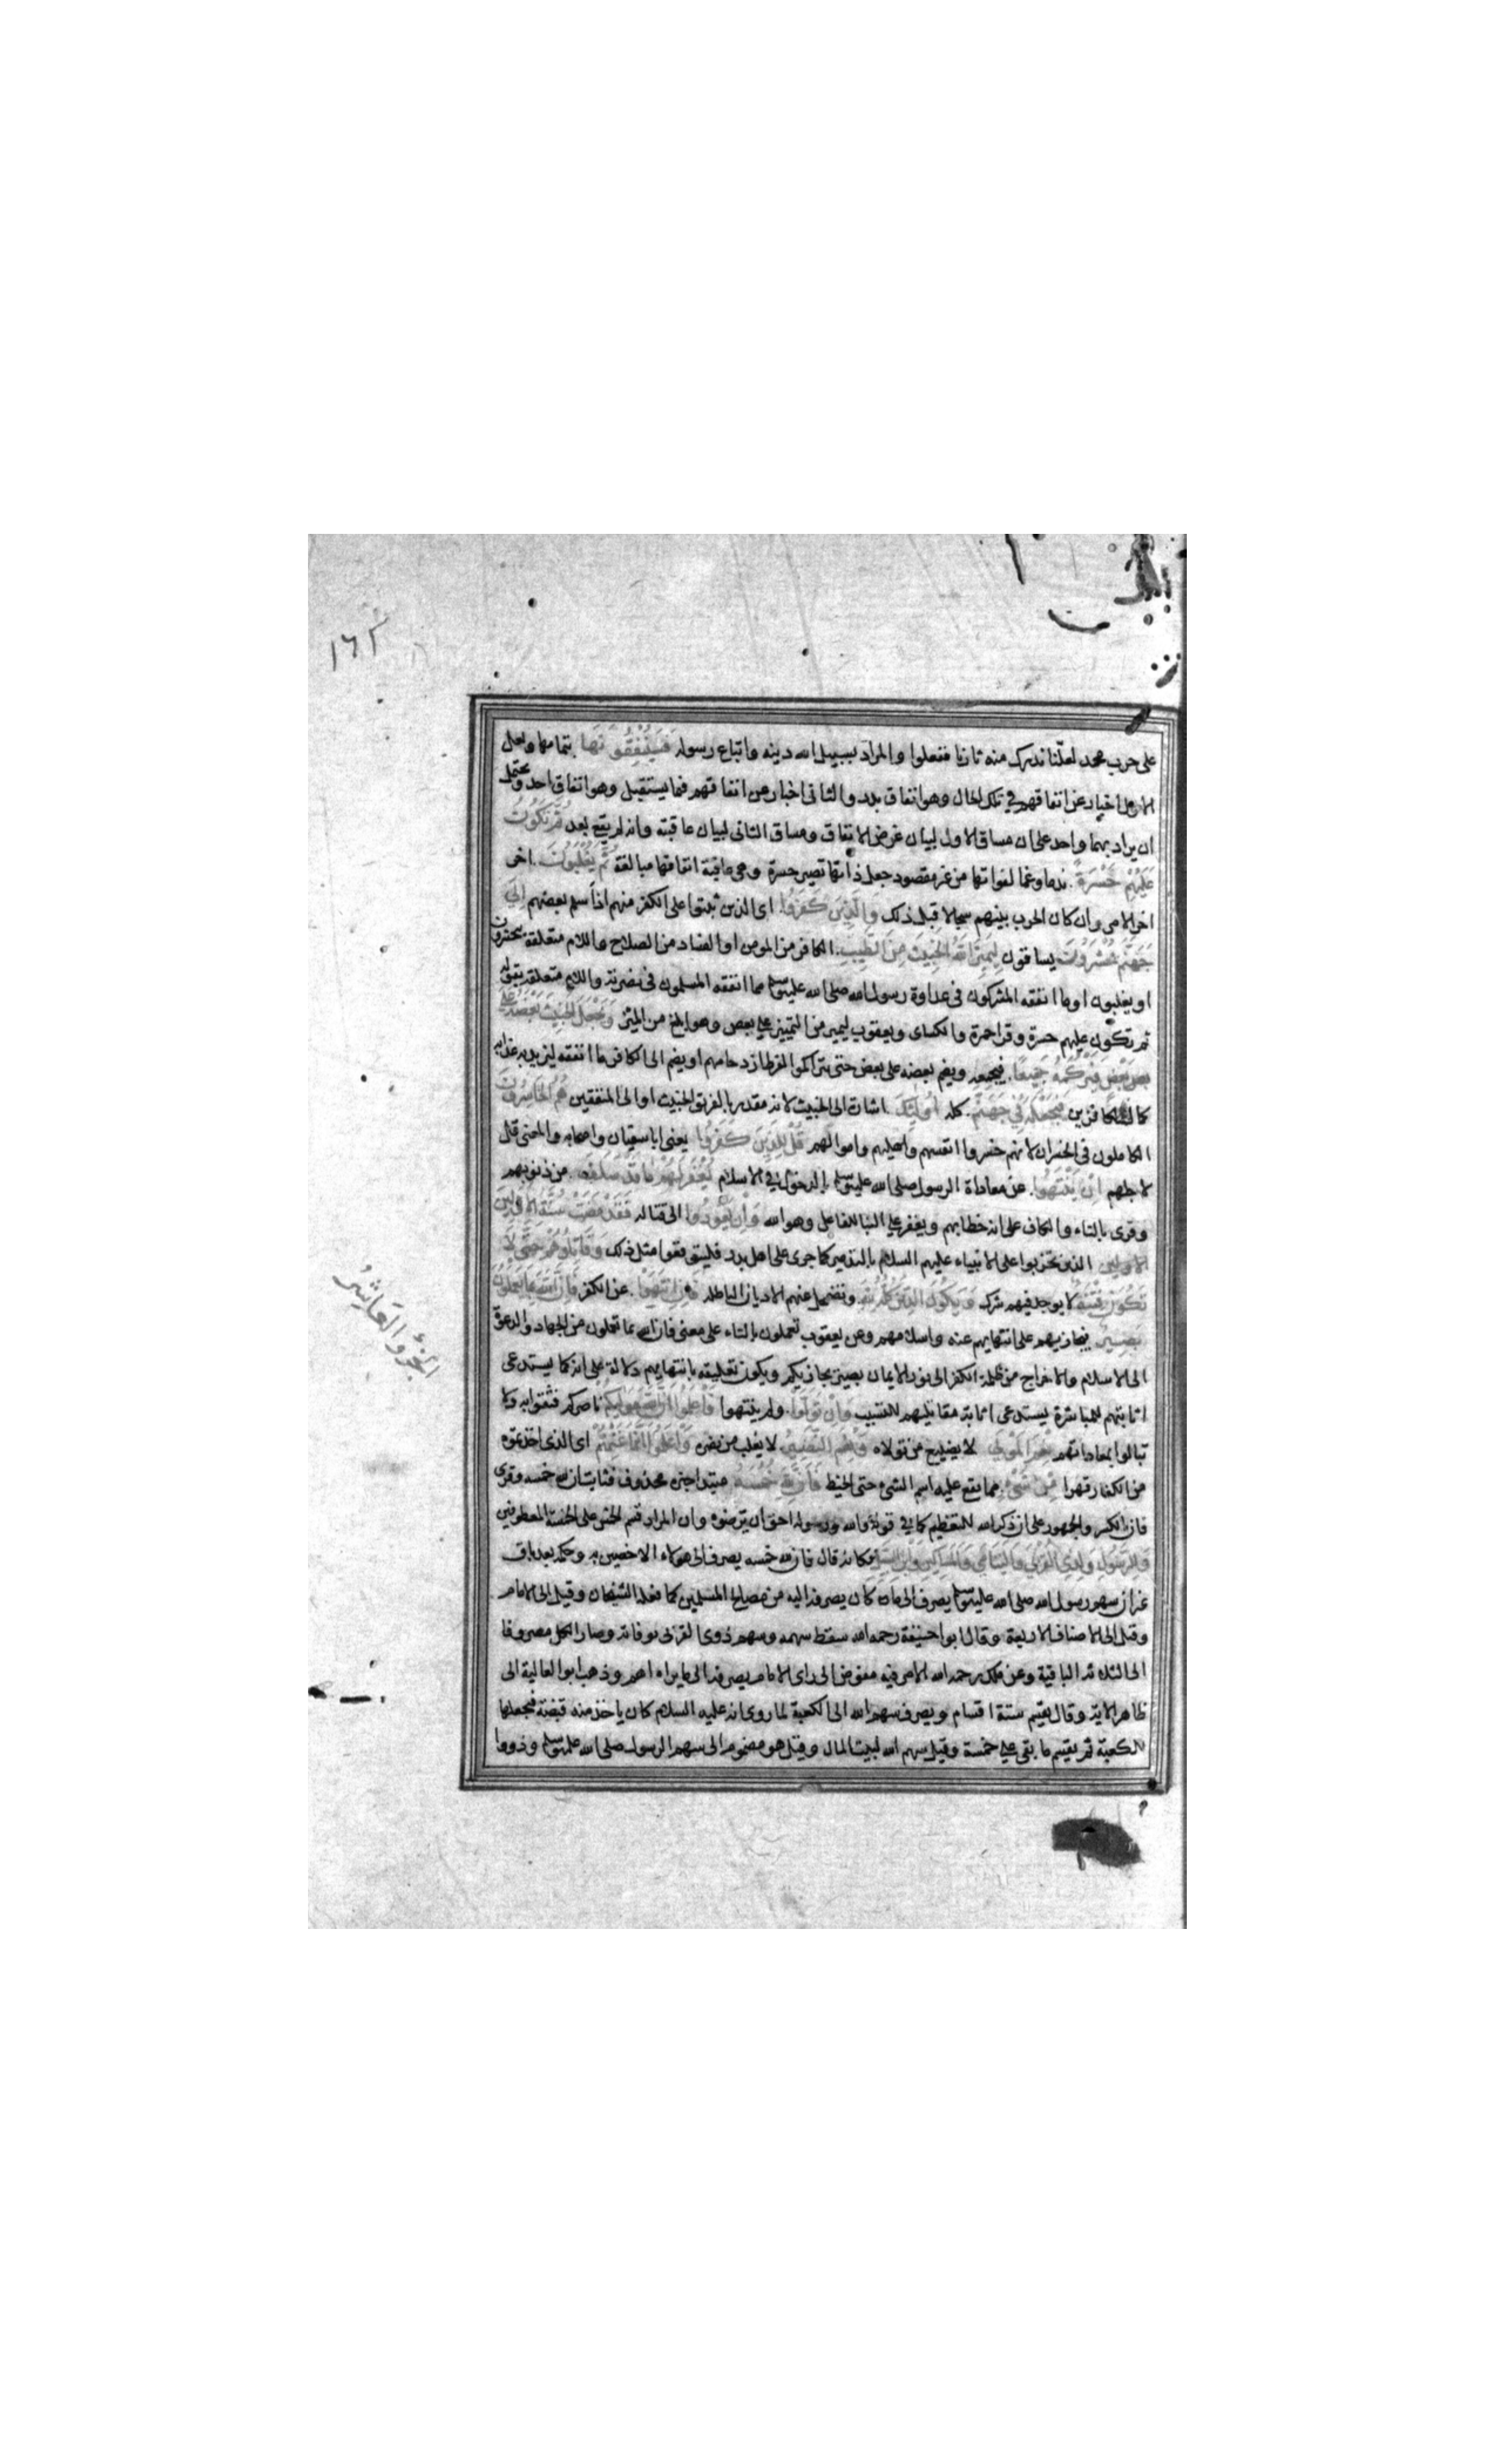 ١٦٢
على حرب محمد لعلنا ندرك منه ثارنا ففعلوا والمراد بسبيل الله دينه واتباع رسوله فسينفقونها بتمامها ولعل
الاول اخبار عن انفاقهم في تلك الحال وهو انفاق بدر والثانى اخبار عن انفاقهم فيما يستقبل وهو انفاق احد ويحتمل
ان يراد بهما واحد على ان مساق الاول لبيان غرض الانفاق ومساق الثانى لبيان عاقبته وانه لم يقع بعد ثم تكون
عليهم حسرة ندما وغما لفواتها من غير مقصود جعل ذاتها تصير حسرة وهى عاقبة انفاقها مبالغة ثم يغلبون اخر
اخر الامر وان كان الحرب بينهم سجالا قبل ذلك والذين كفروا اى الذين ثبتوا على الكفر منهم اذا اسلم بعضهم الى
جهنم يحشرون يساقون ليميز الله الخبيث من الطيب الكافر من المومن او الفساد من الصلاح واللام متعلقة بيحشرون
او يغلبون او ما انفقه المشركون فى عداوة رسول الله صلى الله عليه وسلم مما انفقه المسلمون فى نصرته واللام متعلقة بقوله
ثم تكون عليهم حسرة وقرا حمزة والكساى ويعقوب ليميز من التمييز على بعض وهو ابلغ من الميز ويجعل الخبيث بعضه على
بعض فيركمه جميعا فيجمعه ويضم بعضه على بعض حتى يتراكموا لفرط ازدحامهم او يضم الى الكافر ما انفقه ليزيد به عذابه
كما للكافرين فيجعله في جهنم كله اولئك اشارة الى الخبيث لانه مقدر بالفريق الخبيث او الى المنفقين هم الخاسرون
الكاملون فى الخسران لانهم خسروا انفسهم واهليهم واموالهم قل للذين كفروا يعنى ابا سفيان واصحابه والمعنى قل
لاجلهم ان ينتهوا عن معاداة الرسول صلى الله عليه وسلم بالدخول في الاسلام يغفر لهم ما قد سلف من ذنوبهم
وقرى بالتاء والكاف على انه خطابهم ويغفر على البنا للفاعل وهو الله وان يعودوا الى قتاله فقد مضت سنة الاولين
الاولين الذين تحزبوا على الانبياء عليهم السلام بالتدمير كما جرى على اهل بدر فليتوقعوا مثل ذلك وقاتلوهم حتى لا
تكون فتنة لا يوجد فيهم شرك ويكون الدين كله لله وتضمحل عنهم الاديان الباطله فان انتهوا عن الكفر فان الله بما يعملون
بصير فيجازيهم على انتهايهم عنه واسلامهم وعن يعقوب تعملون بالتاء على معنى فان الله بما تعملون من الجهاد والدعوة
الى الاسلام والاخراج من ظلمة الكفر الى نور الايمان بصير يجازيكم ويكون تعليقه بانتهايهم دلالة على انه كما يستدعى
اثابتهم للمباشرة يستدعى اثابة مقاتليهم للتسبب وان تولوا ولم ينتهوا فاعلموا ان الله موليكم ناصركم فثقوا به ولا
تبالوا بمعاداتهم نعم المولى لا يضيع من تولاه ونعم النصير لا يغلب من نصره واعلموا انما غنمتم اى الذى اخذتموه
من الكفار قهرا من شىء مما يقع عليه اسم الشىء حتى الخيط فان لله خمسه مبتدا خبره محذوف فثابت ان لله خمسه وقرى
فان بالكسر والجمهور على ان ذكر الله للتعظيم كما في قوله والله ورسوله احق ان يرضوه وان المراد قسم الخمس على الخمسة المعطوفين
وللرسول ولذى القربى واليتامى والمساكين وابن السبيل فكانه قال فان لله خمسه يصرف الى هولاء الاخصين به وحكمه بعد باق
غير ان سهم رسول الله صلى الله عليه وسلم يصرف الى ما كان يصرفه اليه من مصالح المسلمين كما فعله الشيخان وقيل الى الامام
وقيل الى الاصناف الاربعة وقال ابو حنيفة رحمه الله سقط سهمه وسهم ذوى القربى بوفاته وصار الكل مصروفا
الى الثلاثة الباقية وعن ملك رحمه الله الامر فيه مفوض الى راى الامام يصرفه الى ما يراه اهم وذهب ابو العالية الى
ظاهر الاية وقال يقسم ستة اقسام ويصرف سهم الله الى الكعبة لما روى انه عليه السلام كان ياخذ منه قبضة فيجعلها
للكعبة ثم يقسم ما بقى على خمسة وقيل سهم الله لبيت المال وقيل هو مضموم الى سهم الرسول صلى الله عليه وسلم وذووا
الجزؤ العاشر